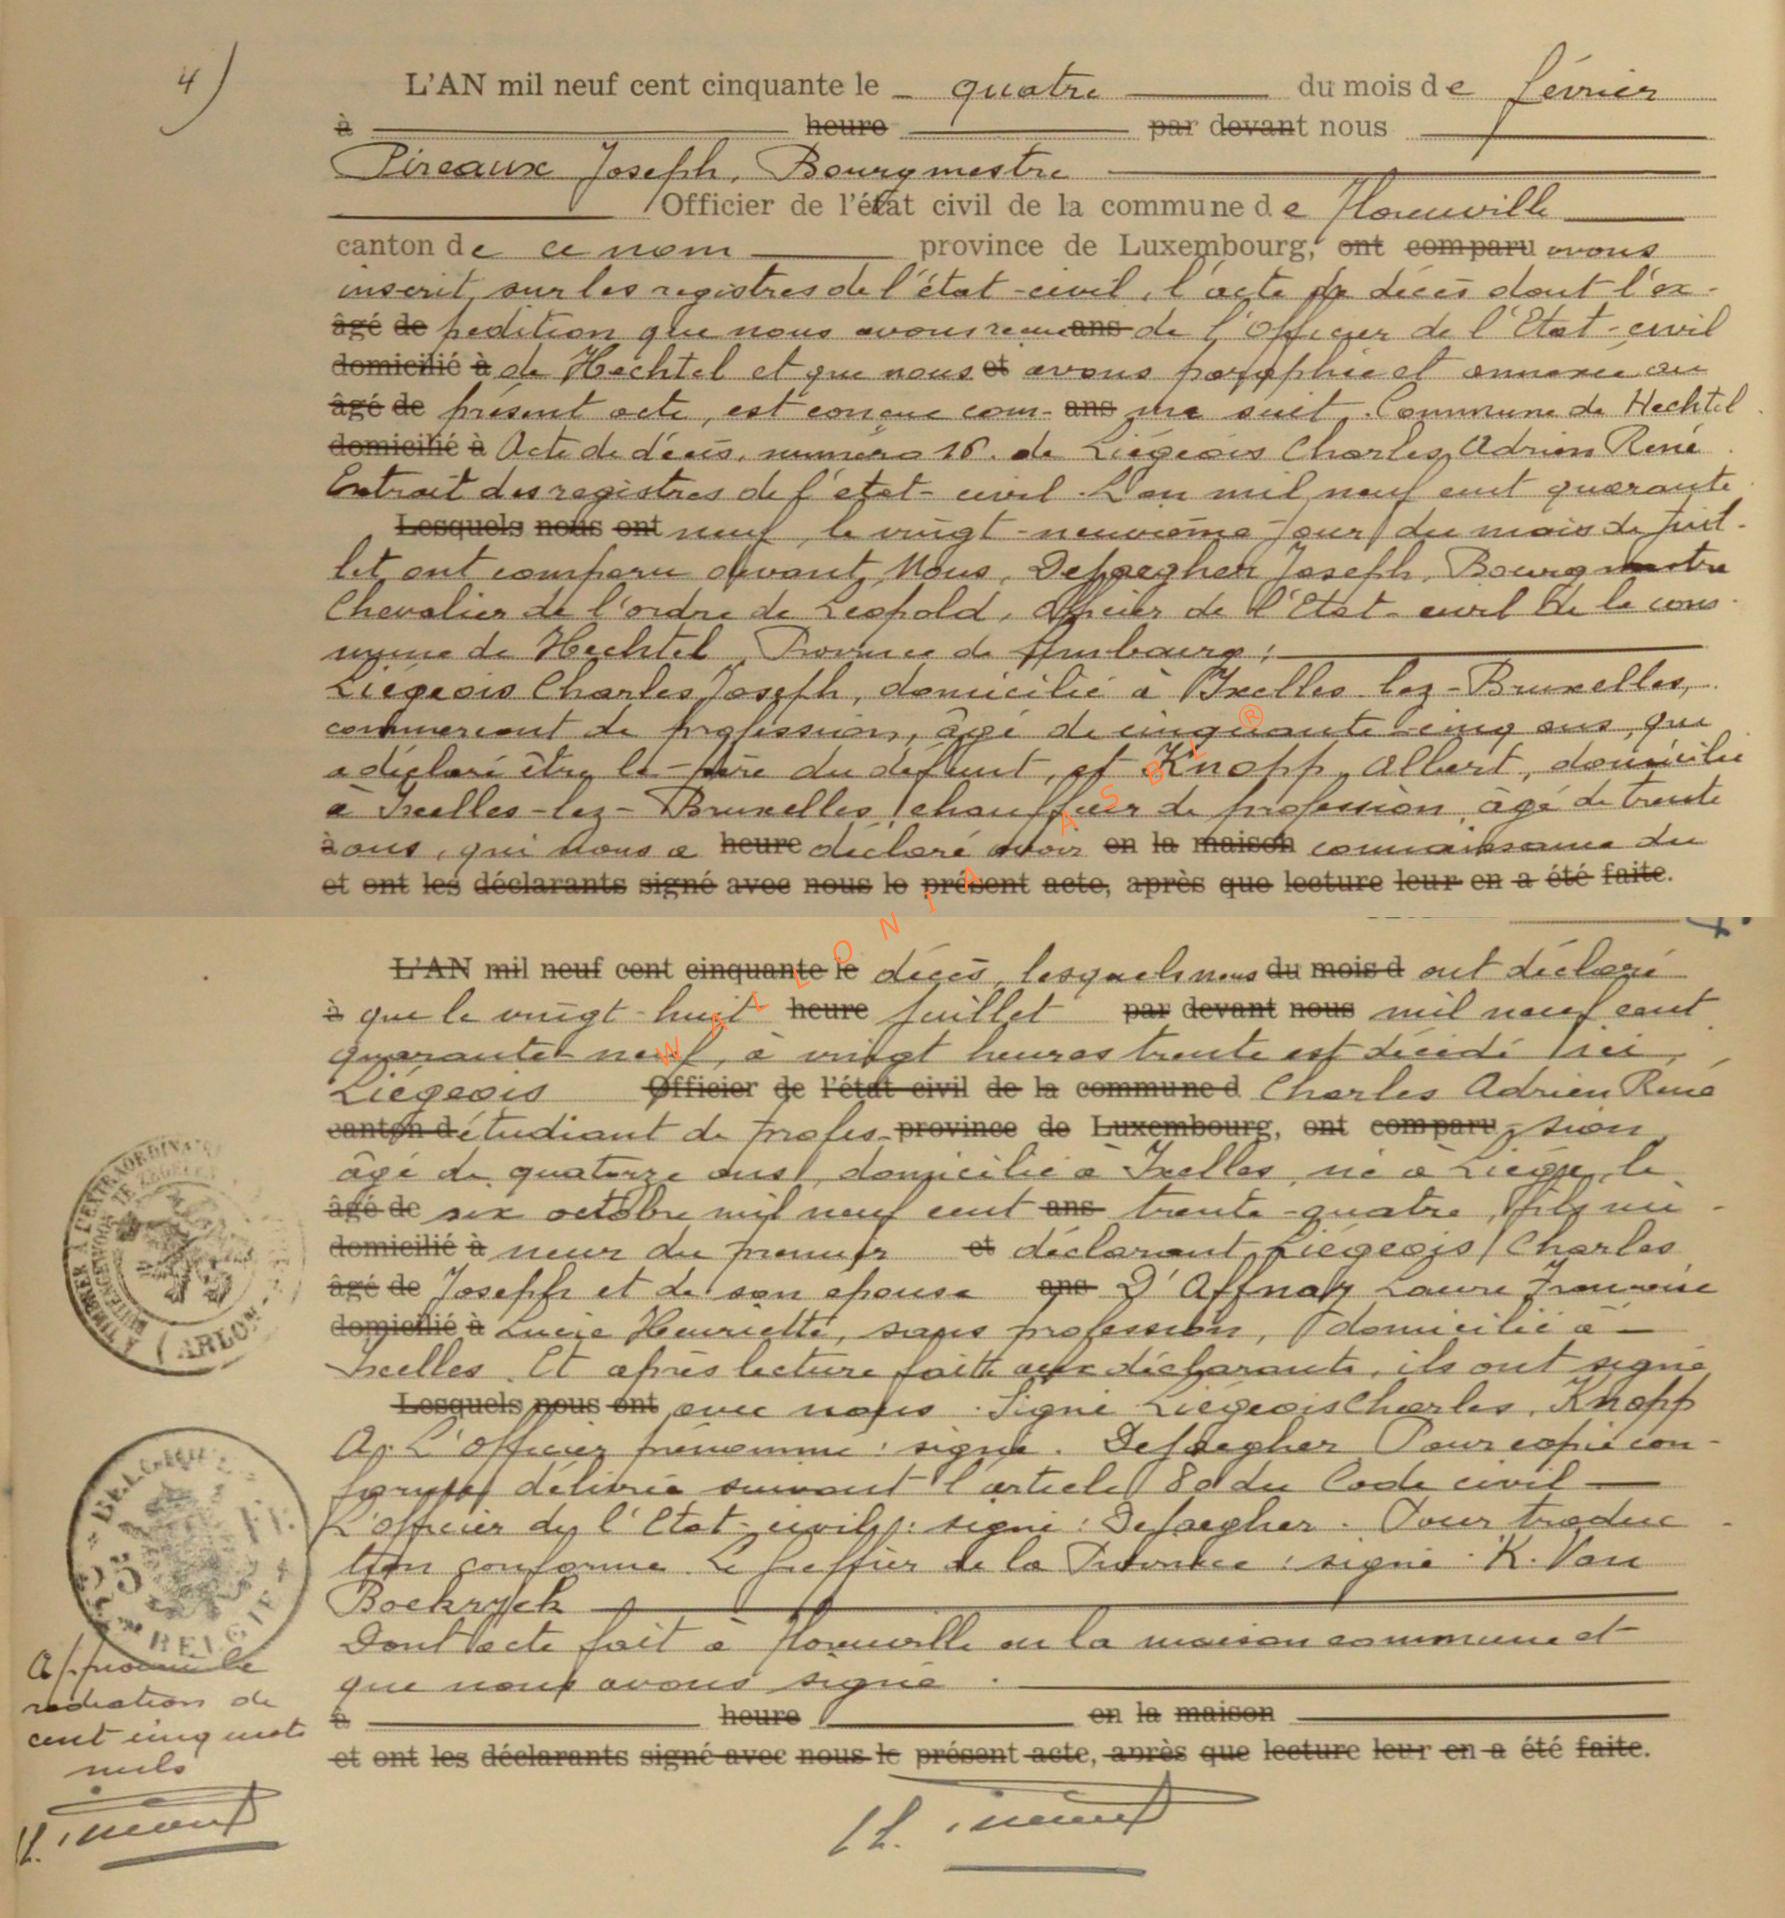 4)
L'AN mil neuf cent cinquante le quatre du mois de février
à heure par devant nous
Pireaux Joseph, Bourgmestre
Officier de l'état civil de la commune de Florenville
canton de ce nom province de Luxembourg, ont comparu avons
inscrit sur les registres de l'état-civil, l'acte de décès dont l'ex-
âgé de pédition que nous avons reçue ans de l'Officier de l'Etat-civil
domicilié à de Hechtel et que nous et avons paraphée et annexée au
âgé de présent acte, est conçue com- ans me suit. Commune de Hechtel
domicilié à Acte de décès, numéro 16. de Liégeois Charles, Adrien René
Extrait des registres de l'état-civil. L'an mil neuf cent quarante
Lesquels nous ont neuf, le vingt-neuvième jour du mois de Juil-
let ont comparu devant Nous, Dejaegher Joseph, Bourgmestre
Chevalier de l'ordre de Léopold, Officier de l'Etat-civil de la com-
mune de Hechtel, Province de Limbourg;
Liégeois Charles Joseph, domicilié à Ixelles-lez-Bruxelles,
commercant de profession, âgé de cinquante-cinq ans, qui
a déclaré être le père du défunt, et Knopp, Albert, domicilié
à Ixelles-lez-Bruxelles, chauffeur de profession, âgé de trente
à ans, qui nous a heure déclaré avoir en la maison connaissance du
et ont les déclarants signé avec nous le présent acte, après que lecture leur en a été faite.
WALLONIA ASBL ®
L'AN mil neuf cent cinquante le décès, lesquels nous du mois d ont déclaré
à que le vingt-huit heure juillet par devant nous mil neuf cent
quarante neuf, à vingt heures trente est décédé ici,
Liégeois Officier de l'état civil de la commune d Charles Adrien René
canton d étudiant de profes- province de Luxembourg, ont comparu sion
âgé de quatorze ans, domicilié à Ixelles, né à Liège, le
âgé de six octobre mil neuf cent ans trente-quatre, fils mi-
domicilié à neur du premier et déclarant, Liégeois Charles
âgé de Joseph et de son épouse ans D'Affnay Laure Françoise
domicilié à Lucie Henriette, sans profession, domicilié à
Ixelles. Et après lecture faite aux déclarants, ils ont signé
Lesquels nous ont avec nous. Signé Liégeois Charles, Knopp
A. L'officier prénommé: signé. Dejaegher Pour copie con-
forme délivrée suivant l'article 80 du Code civil
L'officier de l'Etat-civil: signé: Dejaegher. Pour traduc-
tion conforme. Le Greffier de la Province: signé: K. Van
Boekryck
Dont acte fait à Florenville en la maison commune et
que nous avons signé.
à heure en la maison
et ont les déclarants signé avec nous le présent acte, après que lecture leur en a été faite.
A TIMBRER A L'EXTRAORDINAIRE
(ARLON)
BELGIQUE
BELGIE
Approuvé la
radiation de
cent cinq mots
nuls